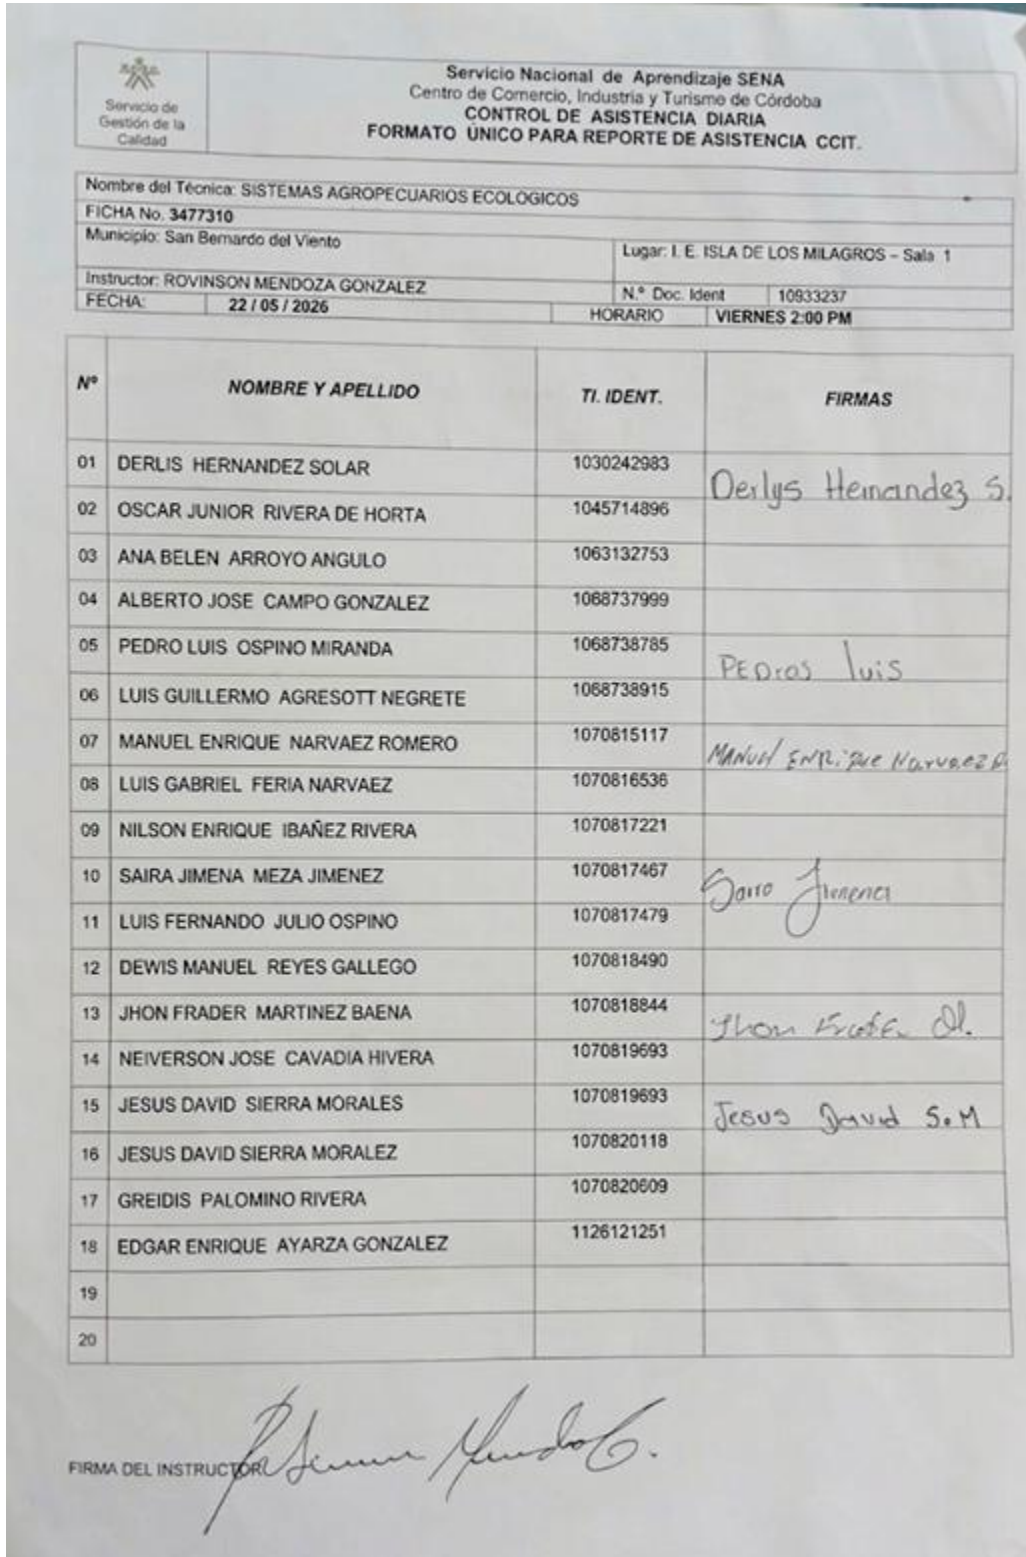 Servicio de
Gestión de la
Calidad
Servicio Nacional de Aprendizaje SENA
Centro de Comercio, Industria y Turismo de Córdoba
CONTROL DE ASISTENCIA DIARIA
FORMATO ÚNICO PARA REPORTE DE ASISTENCIA CCIT.
Nombre del Técnica: SISTEMAS AGROPECUARIOS ECOLOGICOS
FICHA No. 3477310
Municipio: San Bernardo del Viento Lugar: I. E. ISLA DE LOS MILAGROS – Sala 1
Instructor: ROVINSON MENDOZA GONZALEZ N.º Doc. Ident 10933237
FECHA: 22 / 05 / 2026 HORARIO VIERNES 2:00 PM
Nº NOMBRE Y APELLIDO TI. IDENT. FIRMAS
01 DERLIS HERNANDEZ SOLAR 1030242983 Derlys Hernandez S.
02 OSCAR JUNIOR RIVERA DE HORTA 1045714896
03 ANA BELEN ARROYO ANGULO 1063132753
04 ALBERTO JOSE CAMPO GONZALEZ 1068737999
05 PEDRO LUIS OSPINO MIRANDA 1068738785 PEDros luis
06 LUIS GUILLERMO AGRESOTT NEGRETE 1068738915
07 MANUEL ENRIQUE NARVAEZ ROMERO 1070815117 MANUel ENRique Narvaez R.
08 LUIS GABRIEL FERIA NARVAEZ 1070816536
09 NILSON ENRIQUE IBAÑEZ RIVERA 1070817221
10 SAIRA JIMENA MEZA JIMENEZ 1070817467
11 LUIS FERNANDO JULIO OSPINO 1070817479
12 DEWIS MANUEL REYES GALLEGO 1070818490
13 JHON FRADER MARTINEZ BAENA 1070818844 Jhon
14 NEIVERSON JOSE CAVADIA HIVERA 1070819693
15 JESUS DAVID SIERRA MORALES 1070819693 Jesus David S.M
16 JESUS DAVID SIERRA MORALEZ 1070820118
17 GREIDIS PALOMINO RIVERA 1070820609
18 EDGAR ENRIQUE AYARZA GONZALEZ 1126121251
19
20
FIRMA DEL INSTRUCTOR